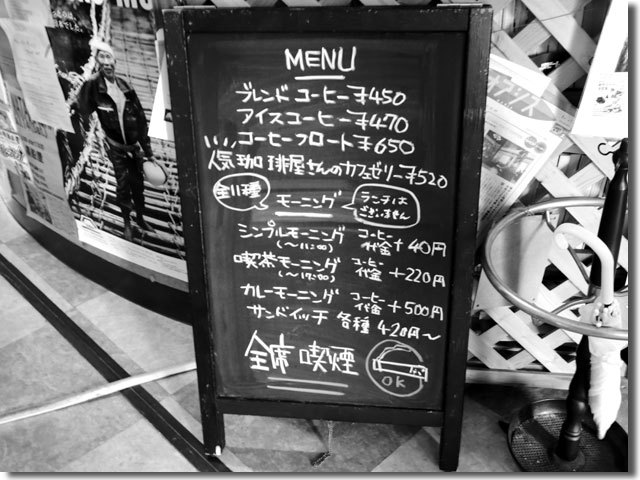 MENU
ブレンドコーヒー ¥450
アイスコーヒー ¥470
コーヒーフロート ¥650
人気 珈琲屋さんのカフェゼリー ¥520
全11種 モーニング ランチは
ございません
シンプルモーニング コーヒー
(〜11:00) 代金 + 40円
喫茶モーニング コーヒー
代金 + 220円
カレーモーニング コーヒー
代金 + 500円
サンドイッチ 各種 420円〜
全席 喫煙
OK